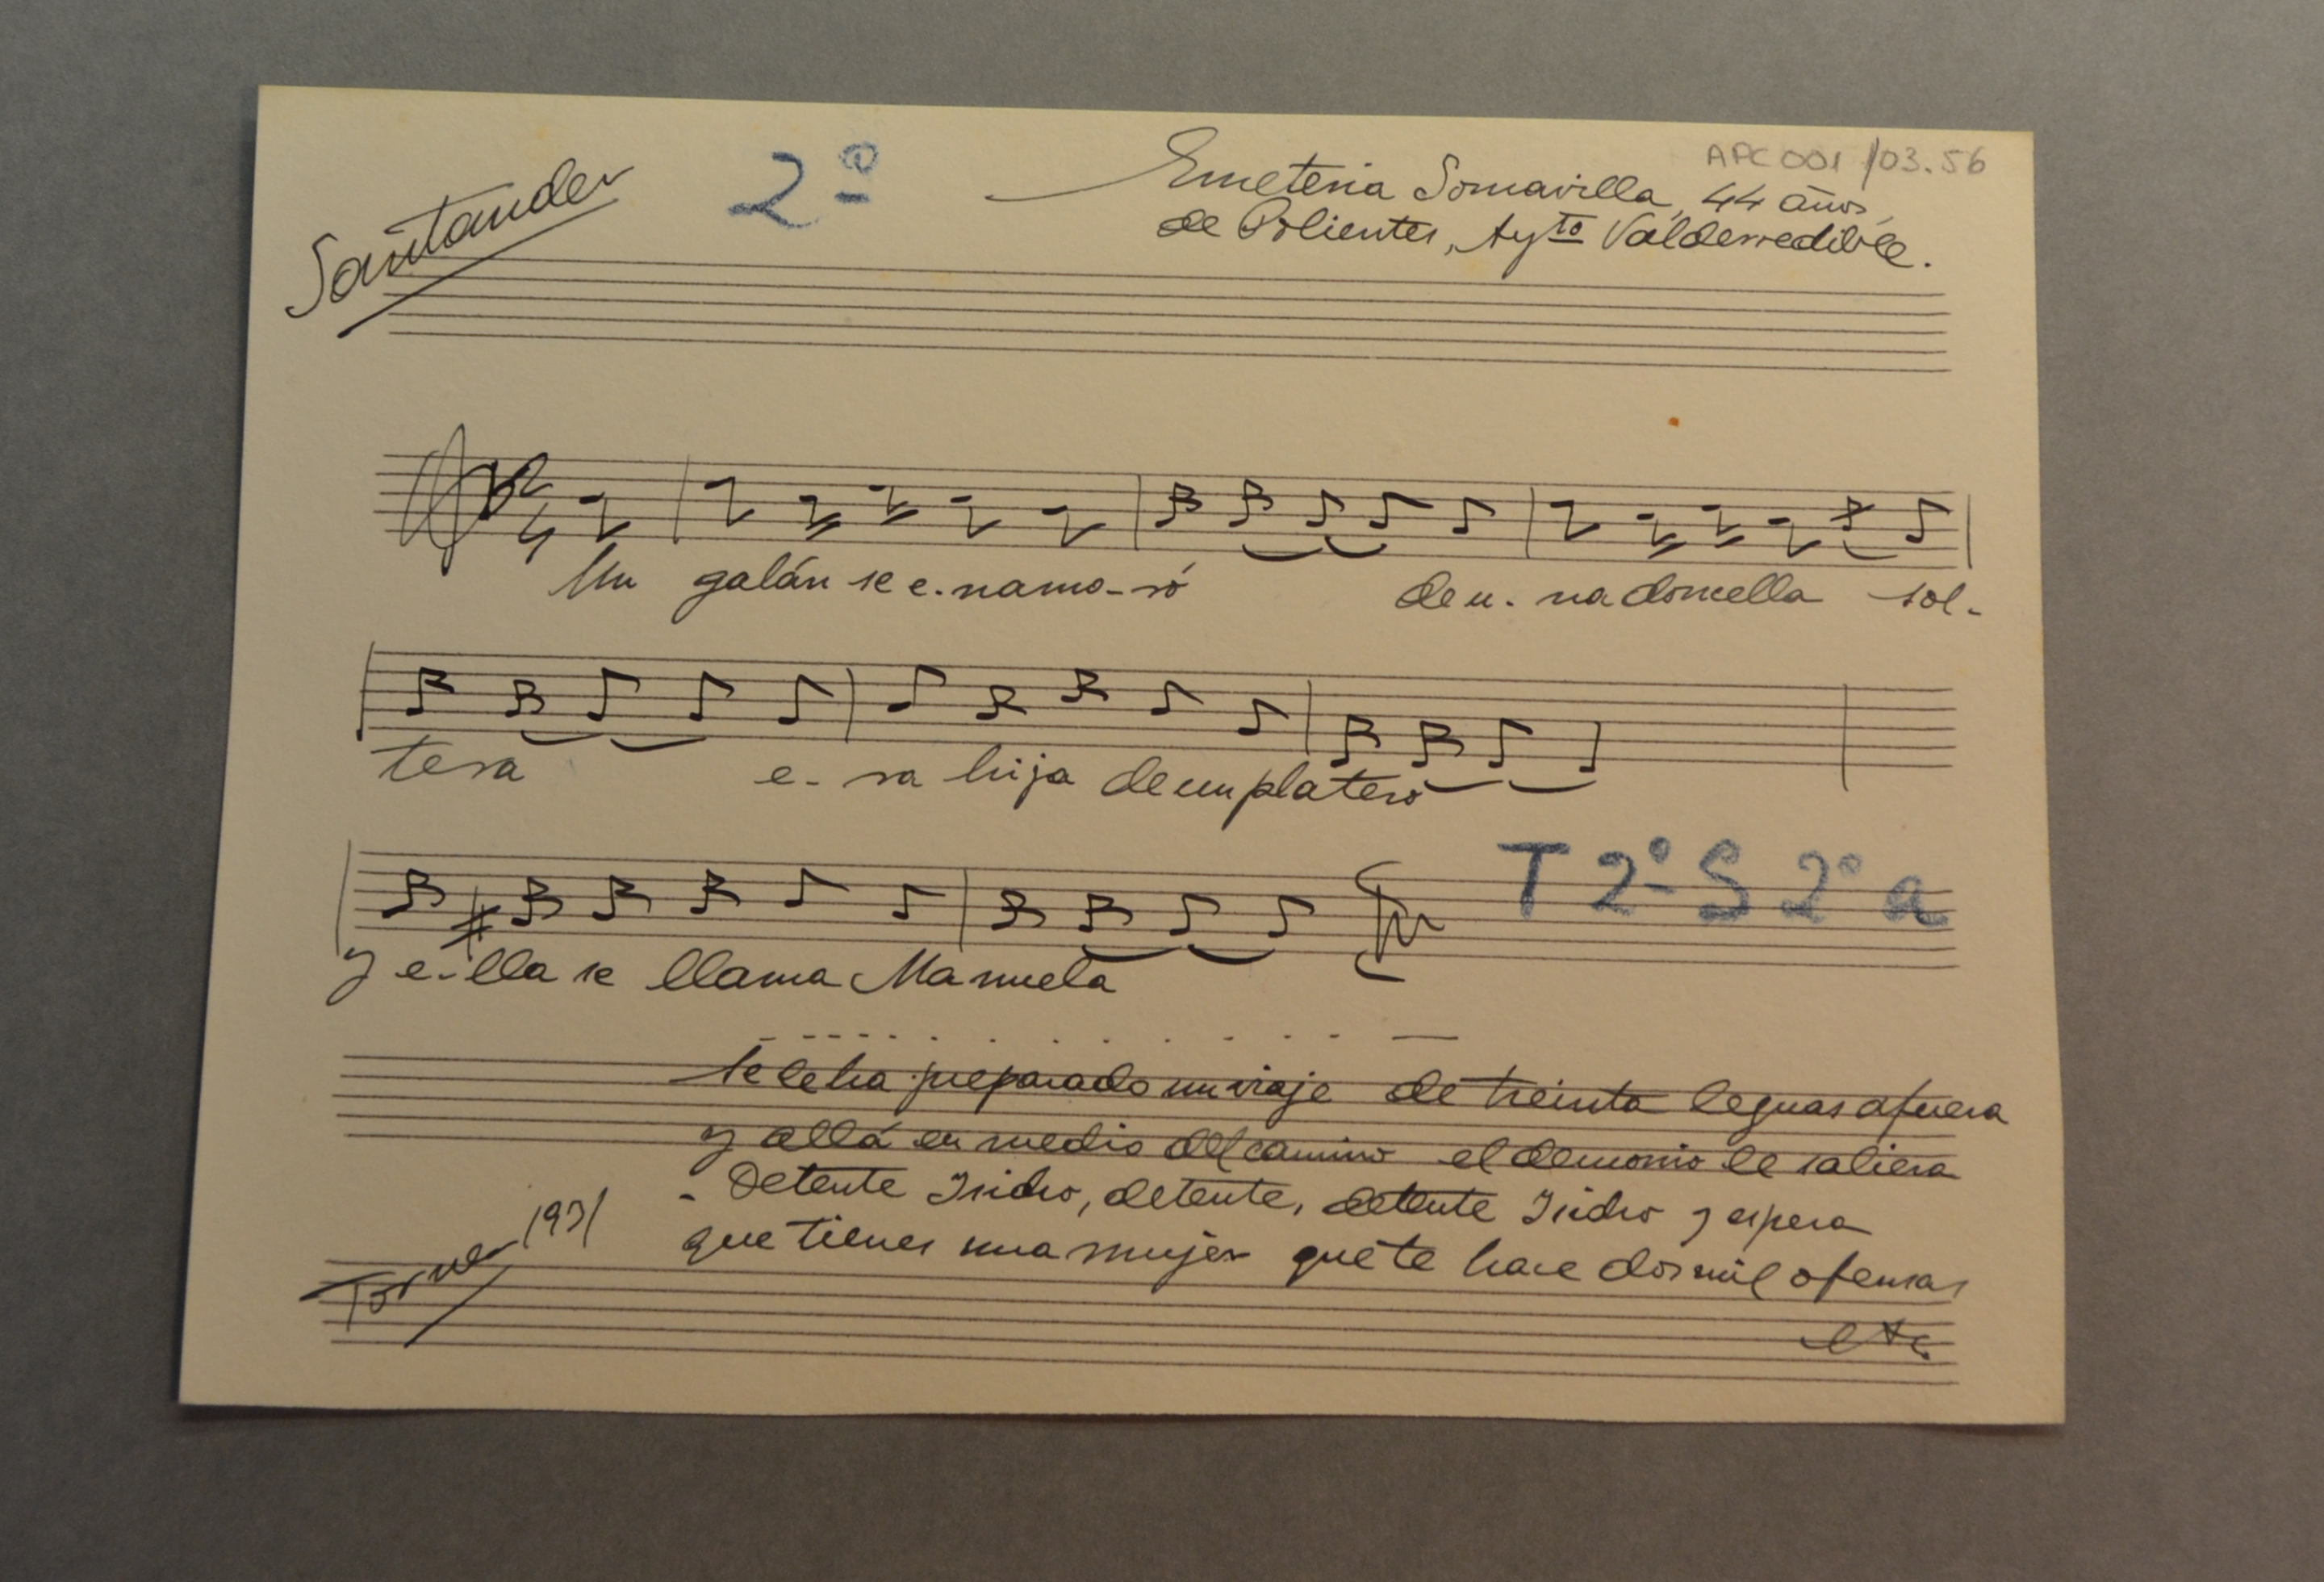 APC 001/03.56
Santander
2º
Emeteria Somavilla, 44 años,
de Polientes, Ayto Valderredible.
2
4
Un galán se e-namo-ró de u-na doncella sol-
tera e-ra hija de un platero
T 2º S 2º a
y e-lla se llama Manuela
se le ha preparado un viaje de treinta leguas afuera
y allá en medio del camino el demonio le saliera
- Detente Isidro, detente, detente Isidro y espera
que tienes una mujer que te hace dos mil ofensas
etc.
Torner 1931